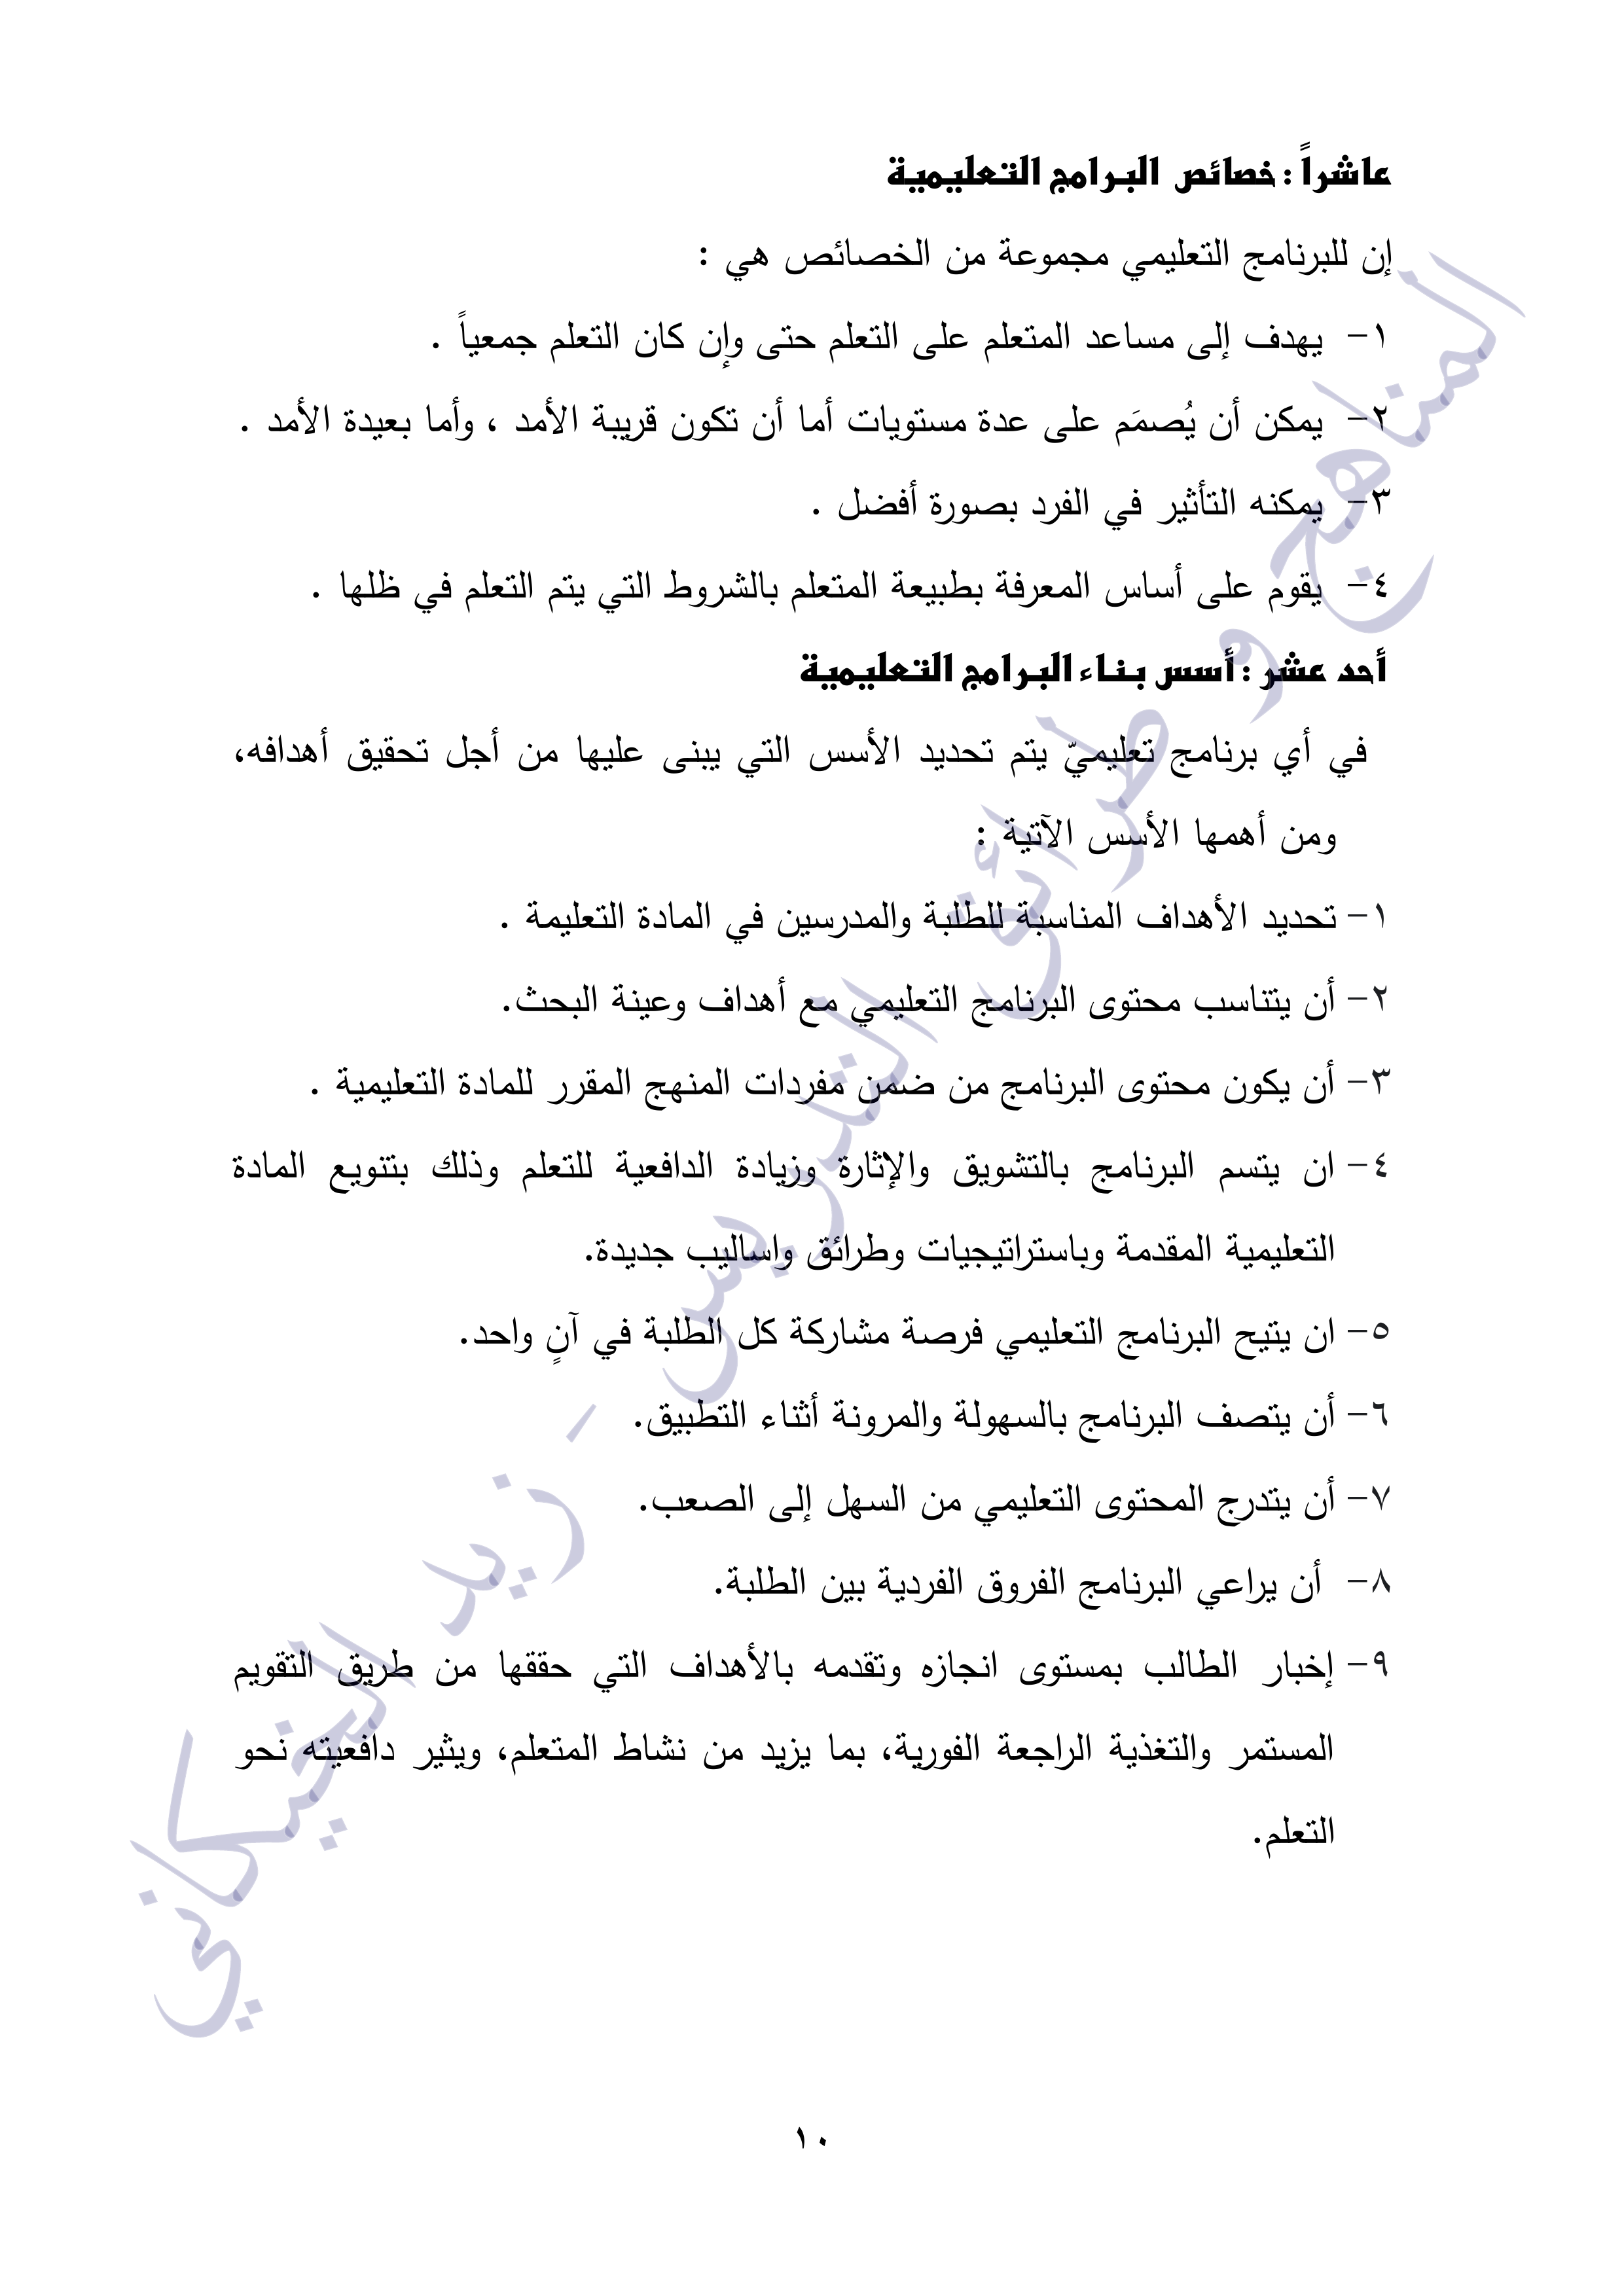 عاشراً : خصائص البرامج التعليمية
إن للبرنامج التعليمي مجموعة من الخصائص هي :
١- يهدف إلى مساعد المتعلم على التعلم حتى وإن كان التعلم جمعياً .
٢- يمكن أن يُصمَم على عدة مستويات أما أن تكون قريبة الأمد ، وأما بعيدة الأمد .
٣- يمكنه التأثير في الفرد بصورة أفضل .
٤- يقوم على أساس المعرفة بطبيعة المتعلم بالشروط التي يتم التعلم في ظلها .
أحد عشر : أسس بناء البرامج التعليمية
في أي برنامج تعليميّ يتم تحديد الأسس التي يبنى عليها من أجل تحقيق أهدافه،
ومن أهمها الأسس الآتية :
١- تحديد الأهداف المناسبة للطلبة والمدرسين في المادة التعليمة .
٢- أن يتناسب محتوى البرنامج التعليمي مع أهداف وعينة البحث.
٣- أن يكون محتوى البرنامج من ضمن مفردات المنهج المقرر للمادة التعليمية .
٤- ان يتسم البرنامج بالتشويق والإثارة وزيادة الدافعية للتعلم وذلك بتنويع المادة
التعليمية المقدمة وباستراتيجيات وطرائق واساليب جديدة.
٥- ان يتيح البرنامج التعليمي فرصة مشاركة كل الطلبة في آنٍ واحد.
٦- أن يتصف البرنامج بالسهولة والمرونة أثناء التطبيق.
٧- أن يتدرج المحتوى التعليمي من السهل إلى الصعب.
٨- أن يراعي البرنامج الفروق الفردية بين الطلبة.
٩- إخبار الطالب بمستوى انجازه وتقدمه بالأهداف التي حققها من طريق التقويم
المستمر والتغذية الراجعة الفورية، بما يزيد من نشاط المتعلم، ويثير دافعيته نحو
التعلم.
المناهج و طرائق التدريس - زيد الخيكاني
١٠